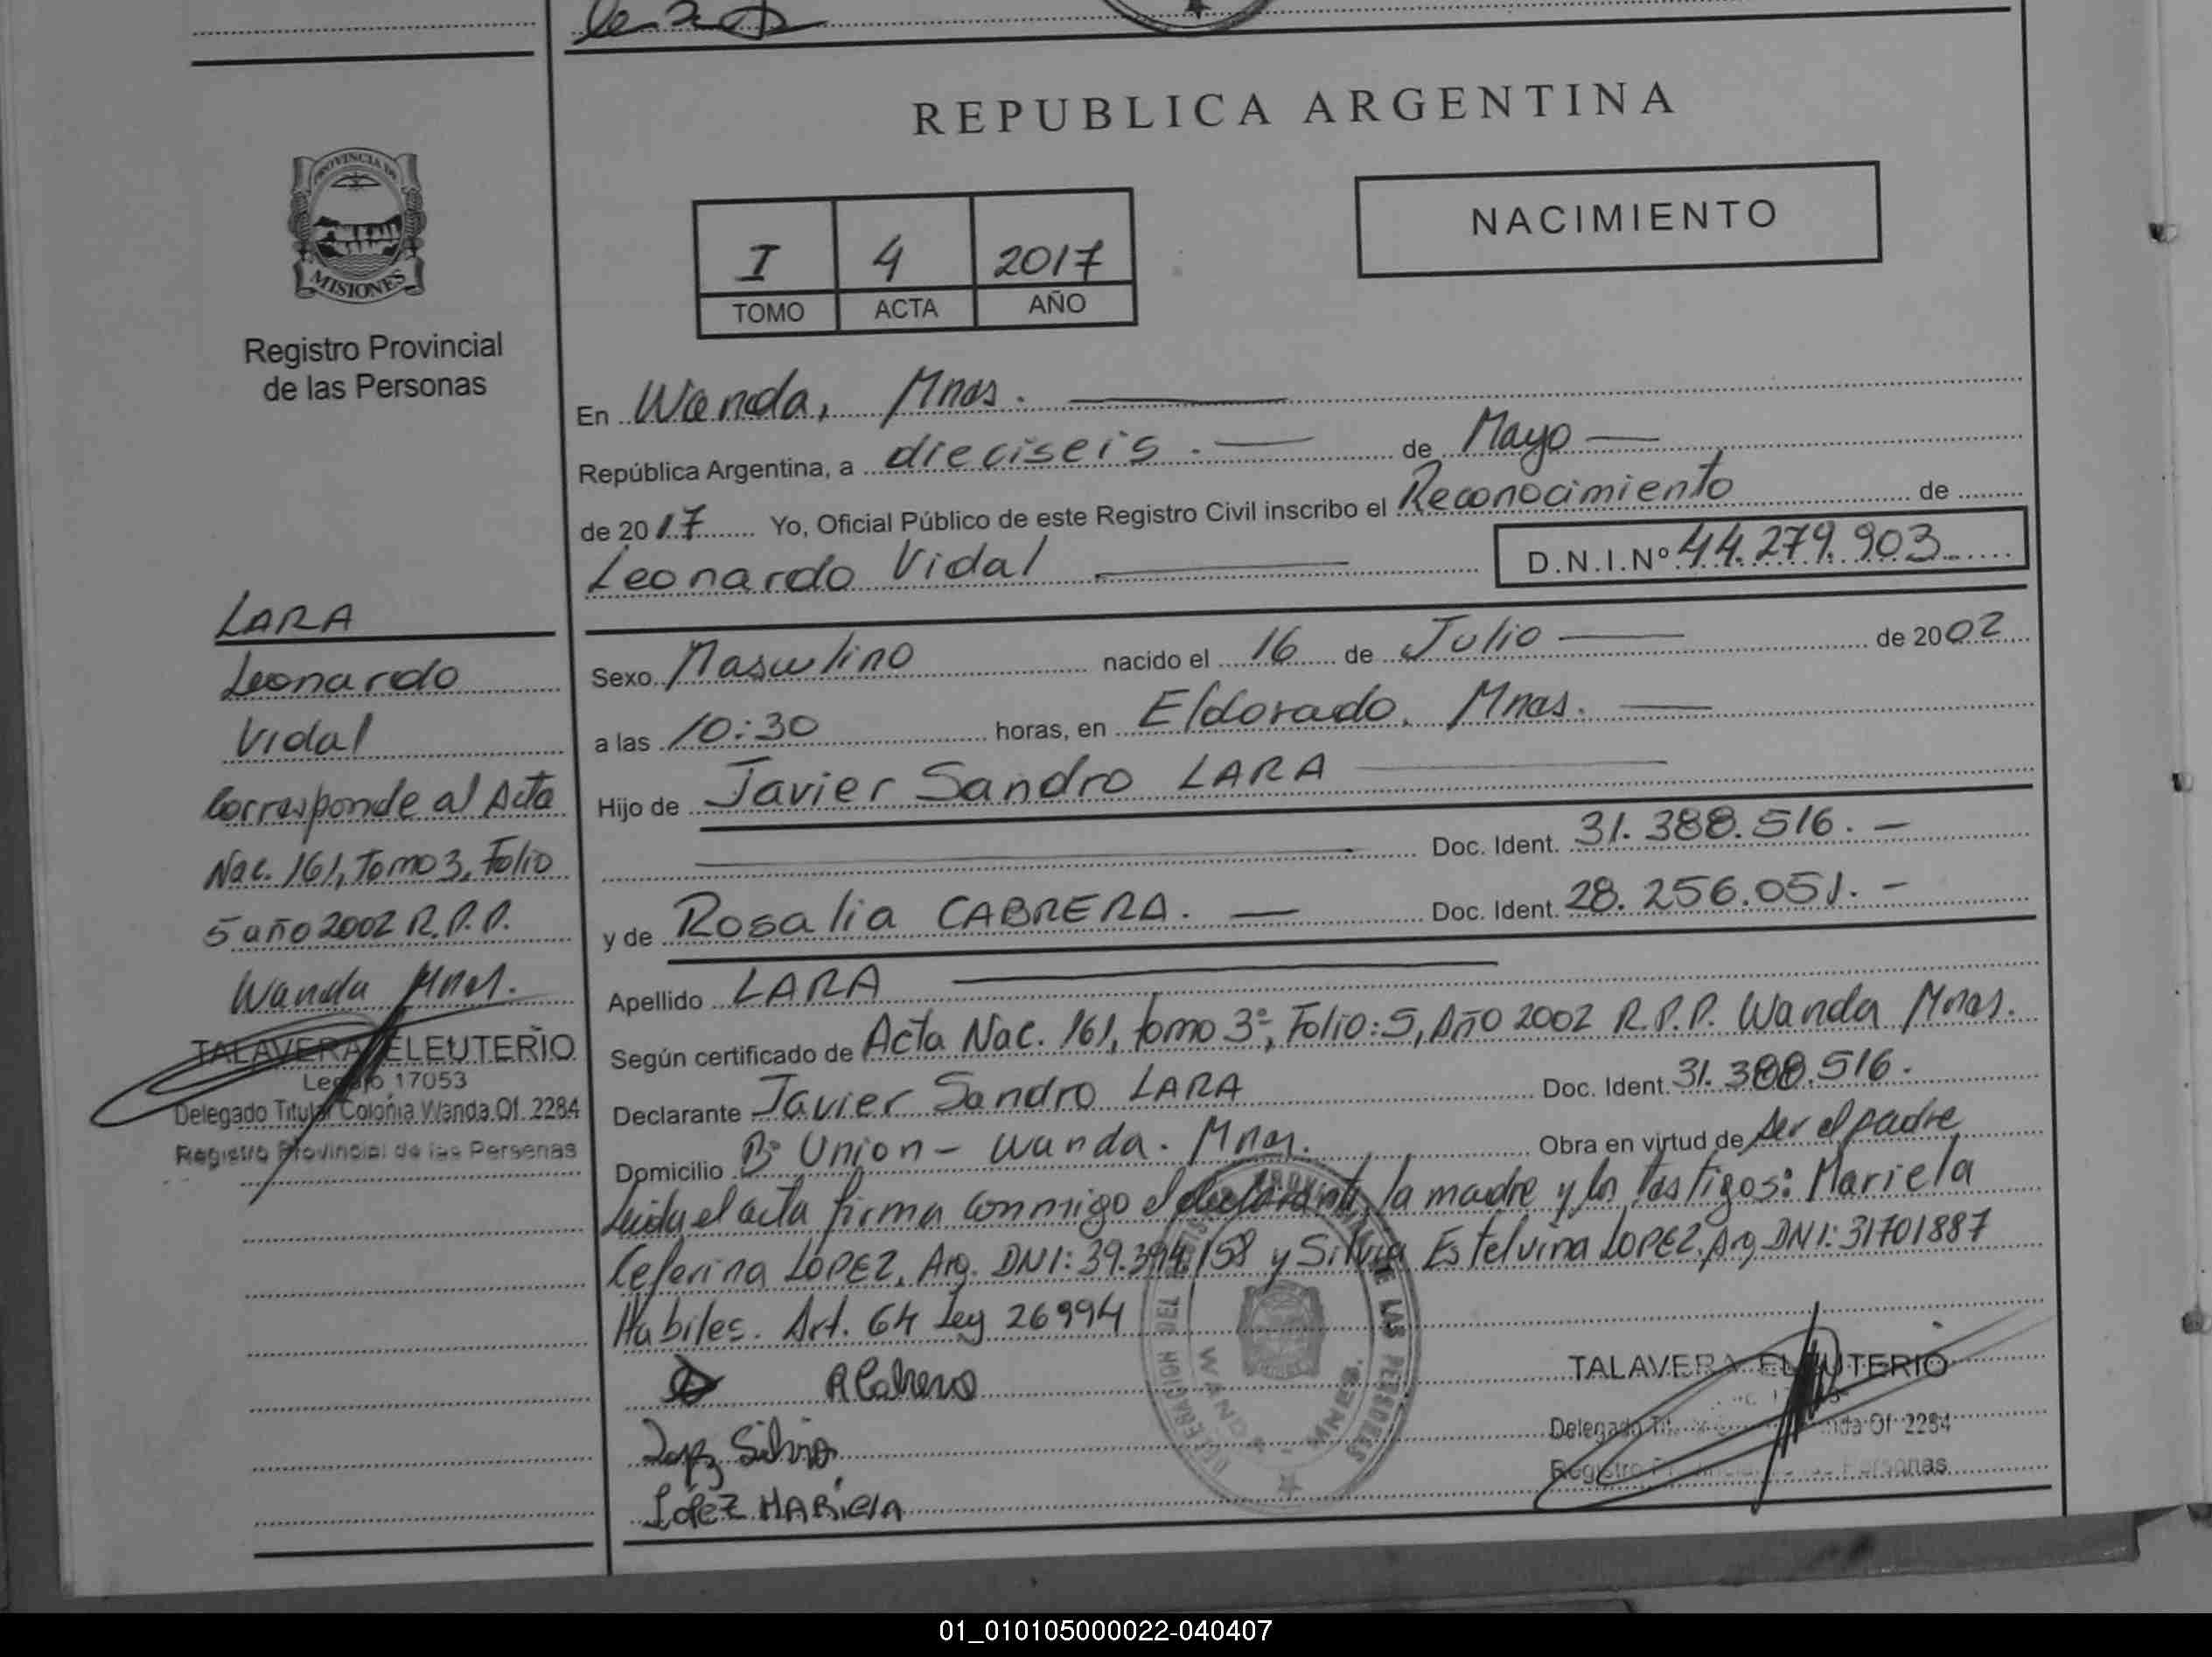 REPUBLICA ARGENTINA
PROVINCIA DE
MISIONES
Registro Provincial
de las Personas
NACIMIENTO
I 4 2017
TOMO ACTA AÑO
En Wanda, Mnes.
República Argentina, a dieciseis. de Mayo
de 2017 Yo, Oficial Público de este Registro Civil inscribo el Reconocimiento de
Leonardo Vidal D.N.I.Nº 44.279.903
Sexo Masculino nacido el 16 de Julio de 2002
a las 10:30 horas, en Eldorado, Mnes.
Hijo de Javier Sandro LARA
Doc. Ident. 31.388.516. -
y de Rosalia CABRERA. Doc. Ident. 28.256.051. -
Apellido LARA
Según certificado de Acta Nac. 161, tomo 3º, Folio: 5, Año 2002 R.P.P. Wanda Mnes.
Declarante Javier Sandro LARA Doc. Ident. 31.388.516.
Domicilio Bº Union - Wanda. Mnes. Obra en virtud de ser el padre
Leida el acta firma conmigo el declarante, la madre y los testigos: Mariela
Ceferina LOPEZ, Arg. DNI: 39.394.158 y Silvia Estelvina LOPEZ, Arg DNI: 31701887
Habiles. Art. 64 Ley 26994
R Cabrera
Lopez Silvia
López MARIELA
TALAVERA ELEUTERIO
Delegado Of 2284
Registro Personas
LAS PERSONAS
WANDA - MNES.
LARA
Leonardo
Vidal
Corresponde al Acta
Nac. 161, Tomo 3, Folio
5 año 2002 R.P.P.
Wanda Mnes.
TALAVERA ELEUTERIO
Legajo 17053
Delegado Titular Colonia Wanda Of. 2284
Registro Provincial de las Personas
01_010105000022-040407